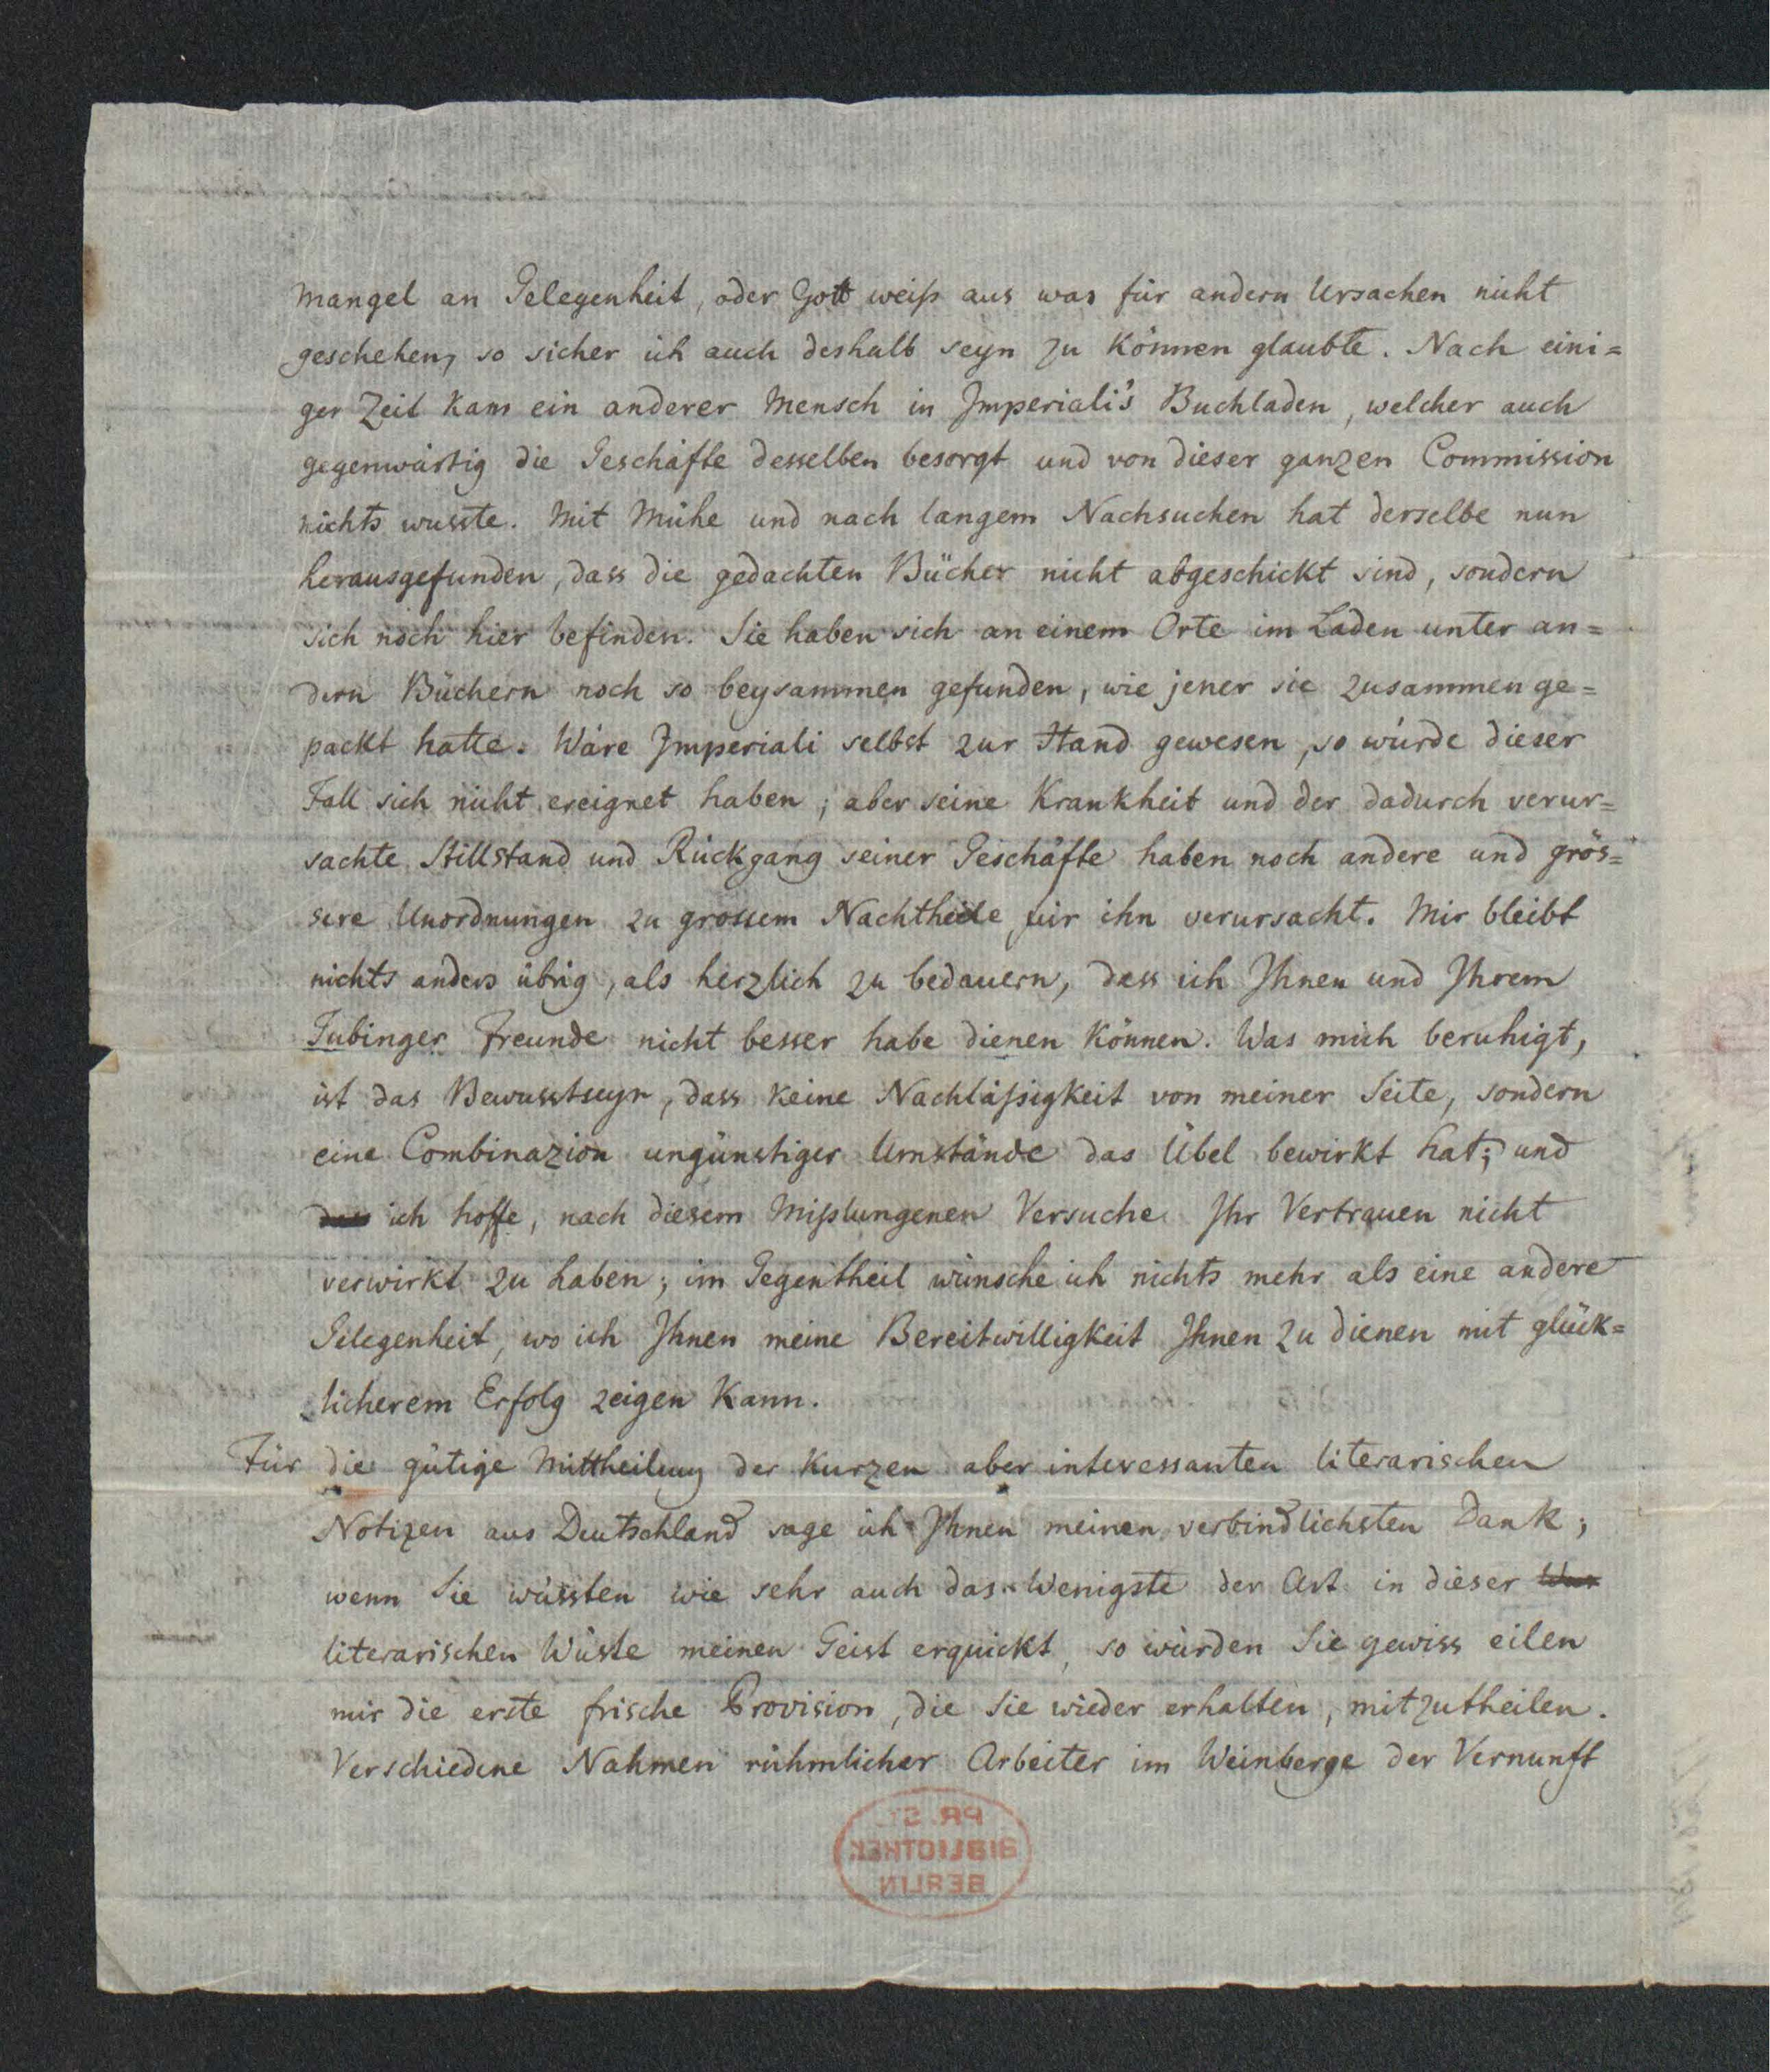 Mangel an Gelegenheit, oder Gott weiß aus was für andern Ursachen nicht
geschehen, so sicher ich auch deshalb seyn zu können glaubte. Nach eini=
ger Zeit kam ein anderer Mensch in Imperiali's Buchladen, welcher auch
gegenwärtig die Geschäfte desselben besorgt und von dieser ganzen Commission
nichts wusste. Mit Mühe und nach langem Nachsuchen hat derselbe nun
herausgefunden, dass die gedachten Bücher nicht abgeschickt sind, sondern
sich noch hier befinden. Sie haben sich an einem Orte im Laden unter an=
dern Büchern noch so beysammen gefunden, wie jener sie zusammen ge=
packt hatte. Wäre Imperiali selbst zur Hand gewesen, so würde dieser
Fall sich nicht ereignet haben; aber seine Krankheit und der dadurch verur=
sachte Stillstand und Rückgang seiner Geschäfte haben noch andere und grös=
sere Unordnungen zu grossem Nachtheile für ihn verursacht. Mir bleibt
nichts anders übrig, als herzlich zu bedauern, dass ich Ihnen und Ihrem
Tubinger Freunde nicht besser habe dienen können. Was mich beruhigt,
ist das Bewusstseyn, dass keine Nachläßigkeit von meiner Seite, sondern
eine Combinazion ungünstiger Umstände das Übel bewirkt hat; und
dass ich hoffe, nach diesem mißlungenen Versuche Ihr Vertrauen nicht
verwirkt zu haben; im Gegentheil wünsche ich nichts mehr als eine andere
Gelegenheit, wo ich Ihnen meine Bereitwilligkeit Ihnen zu dienen mit glück=
licherem Erfolg zeigen kann.
Für die gütige Mittheilung der kurzen aber interessanten literarischen
Notizen aus Deutschland sage ich Ihnen meinen verbindlichsten Dank;
wenn Sie wüssten wie sehr auch das Wenigste der Art in dieser
literarischen Wüste meinen Geist erquickt, so würden Sie gewiss eilen
mir die erste frische Provision, die Sie wieder erhalten, mitzutheilen.
Verschiedene Nahmen rühmlicher Arbeiter im Weinberge der Vernunft
PR. ST.
BIBLIOTHEK
BERLIN